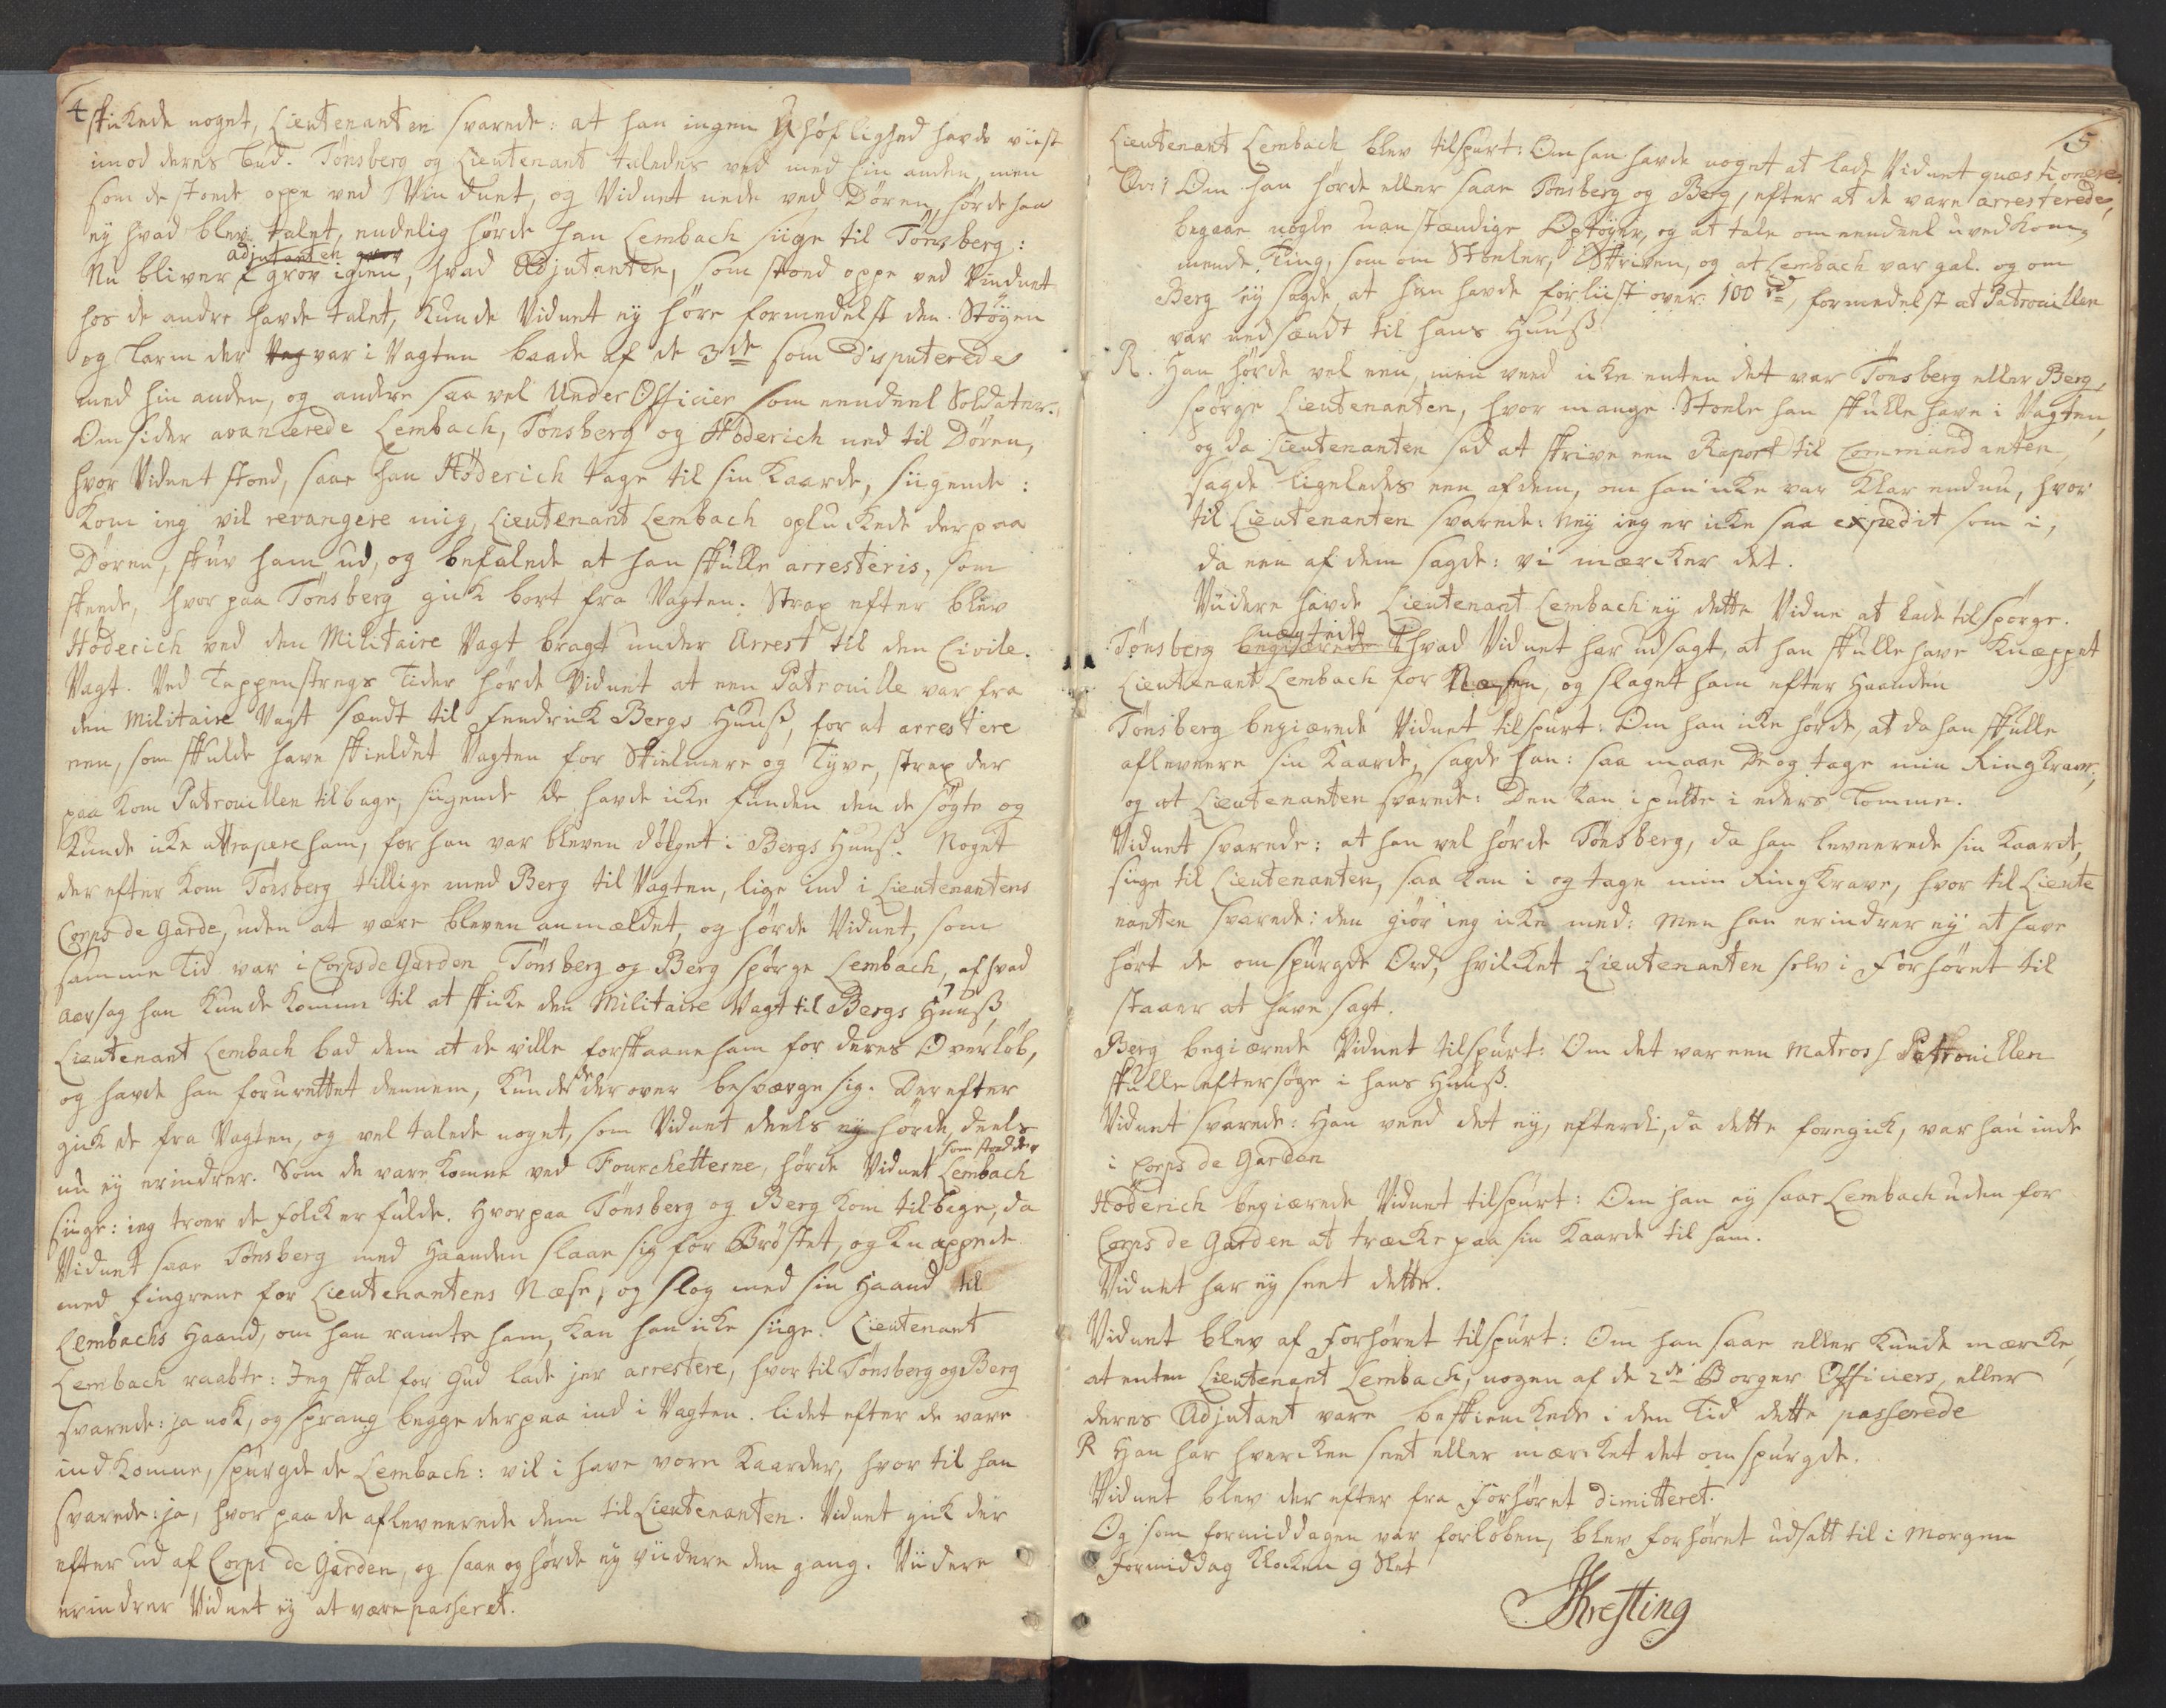 4
skikede noget, Lieutenanten svarede: at han ingen Uhøflighed havde viist
imod deres bud. Tønsberg og Lieutenant taledes ved med hin anden, men
som de stoede oppe ved Vinduet, og Vidnet nede ved Døren, hørde han
ej hvad blev talet, endelig hørde han Lembach siige til Tönsberg:
adjutanten grov
Nu bliver grov igien, hvad Adjutanten, som stoed oppe ved Vinduet
hos de andre havde talet, kunde Vidnet ej høre formedelst den Støyen
og Larm der Vag var i Vagten baade af de 3de som disputerede
med hin anden, og andre saa vel Under Officier som eendeel Soldater.
Omsider avancerede Lembach, Tønsberg og Höderich ned til Døren,
hvor Vidnet stoed, saae han Höderich tage til sin Kaarde, siigende:
Kom ieg vil revangere mig, Lieutenant Lembach oplukede derpaa
Døren, skuv ham ud, og befalede at han skulle arresteris, som
skeede, hvorpaa Tönsberg gick bort fra Vagten. Strax efter blev
Höderich ved den Militaire Vagt bragt under Arrest til den Civile
Vagt. Ved Tappenstregs Tider hørde Vidnet at een Patrouille var fra
den Militaire Vagt sendt til Fendrick Bergs Huuß, for at arrestere
een, som skulde have skieldet Vagten for Skielmere og Tyve, strax der
paa kom Patrouillen tilbage, siigende de havde icke funden den de søgte og
kunde icke attrapere ham, for han var bleven dølget i Bergs Huuß. Noget
derefter kom Tönsberg tillige med Berg til Vagten, lige ind i Lieutenantens
Corps de Garde, uden at være bleven anmældet, og hørde Vidnet, som
samme Tid var i Corps de Garden Tönsberg og Berg spørge Lembach, af hvad
aarsag han kunde komme til at skicke den Militaire Vagt til Bergs Huuß,
Lieutenant Lembach bad dem at de ville forskaane ham for deres Overløb,
og havde han forurettet dennem, kunde de derover besværge sig. Derefter
gick de fra Vagten, og vel talede noget, som Vidnet deels ej hørde, deels
som stod der
nu ej erindrer. Som de vare komne ved Fourchetterne, hørde Vidnet Lembach
siige: ieg troer de folck er fulde. Hvorpaa Tönsberg og Berg kom tilbage, da
Vidnet saae Tönsberg med Haanden slaae sig for Brøstet, og knappede
med fingrene for Lieutenantens Næse, og slog med sin Haand til
Lembachs Haand, om han ramte ham, kan han icke siige. Lieutenant
Lembach raabte: Jeg skal for Gud lade jer arrestere, hvortil Tönsberg og Berg
svarede: ja nok, og sprang begge derpaa ind i Vagten. lidet efter de vare
indkomne, spurgde de Lembach: vil i have vore Kaarder, hvortil han
svarede: ja, hvorpaa de afleverede dem til Lieutenanten. Vidnet gick der
efter ud af Corps de Garden, og saae og hørde ej viidere den gang. Viidere
erindrer Vidnet ej at være passeret.
5
Lieutenant Lembach blev tilspurt: Om han havde noget at lade Vidnet quæstionere.
Qvs: 1 Om han hørde eller saae Tönsberg og Berg, efter at de vare arresterede,
begaae nogle uanstændige Optøyer, og at tale om eendeel uvedkom-
mende Ting, som om Stoeler, Skriven, og at Lembach var gal. og om
Berg ej sagde, at han havde forliist over 100 rd, formedelst at Patrouillen
var nedsendt til hans Huuß
R. Han hørde vel een, men veed icke enten det var Tönsberg eller Berg,
spørge Lieutenanten, hvor mange Stoele han skulle have i Vagten,
og da Lieutenanten sad at skrive een Raport til Commandanten,
sagde ligeledes een af dem, om han icke var klar endnu, hvor
til Lieutenanten svarede: Nej ieg er icke saa expedit som i,
da een af dem sagde: vi mærcker det.
Viidere havde Lieutenant Lembach ej dette Vidne at lade tilspørge.
nægtede
Tönsberg begierede hvad Vidnet har udsagt, at han skulle have knæppet
Lieutenant Lembach for Næsen, og slaget ham efter Haanden
Tönsberg begiærede Vidnet tilspurt: Om han icke hørde, at da han skulle
aflevere sin Kaarde, sagde han: saa maae De og tage min Ringkrave,
og at Lieutenanten svarede: Den kan i putte i eders Lomme.
Vidnet svarede: at han vel hørde Tönsberg, da han leverede sin Kaarde,
siige til Lieutenanten, saa kan i og tage min Ringkrave, hvortil Lieute
nanten svarede: den giør ieg icke med: Men han erindrer ej at have
hørt de omspurgde Ord, hvilcket Lieutenanten selv i Forhøret til
staaer at have sagt.
Berg begiærede Vidnet tilspurt: Om det var een Matros Patrouillen
skulle eftersøge i hans Huuß.
Vidnet svarede: Han veed det ej, efterdi, da dette foregick, var han inde
i Corps de Garden
Höderich begiærede Vidnet tilspurt: Om han ej saae Lembach uden for
Corps de Garden at træcke paa sin Kaarde til ham.
Vidnet har ej seet dette.
Vidnet blev af Forhøret tilspurt: Om han saae eller kunde mærcke,
at enten Lieutenant Lembach, nogen af de 2de Borger Officiers, eller
deres Adjutant vare beskienckede i den Tid dette passerede
R Han har hvercken seet eller mærcket det omspurgde.
Vidnet blev derefter fra Forhøret dimitteret.
Og som formiddagen var forløben, blev forhøret udsatt til i Morgen
Formiddag Klocken 9 Slet